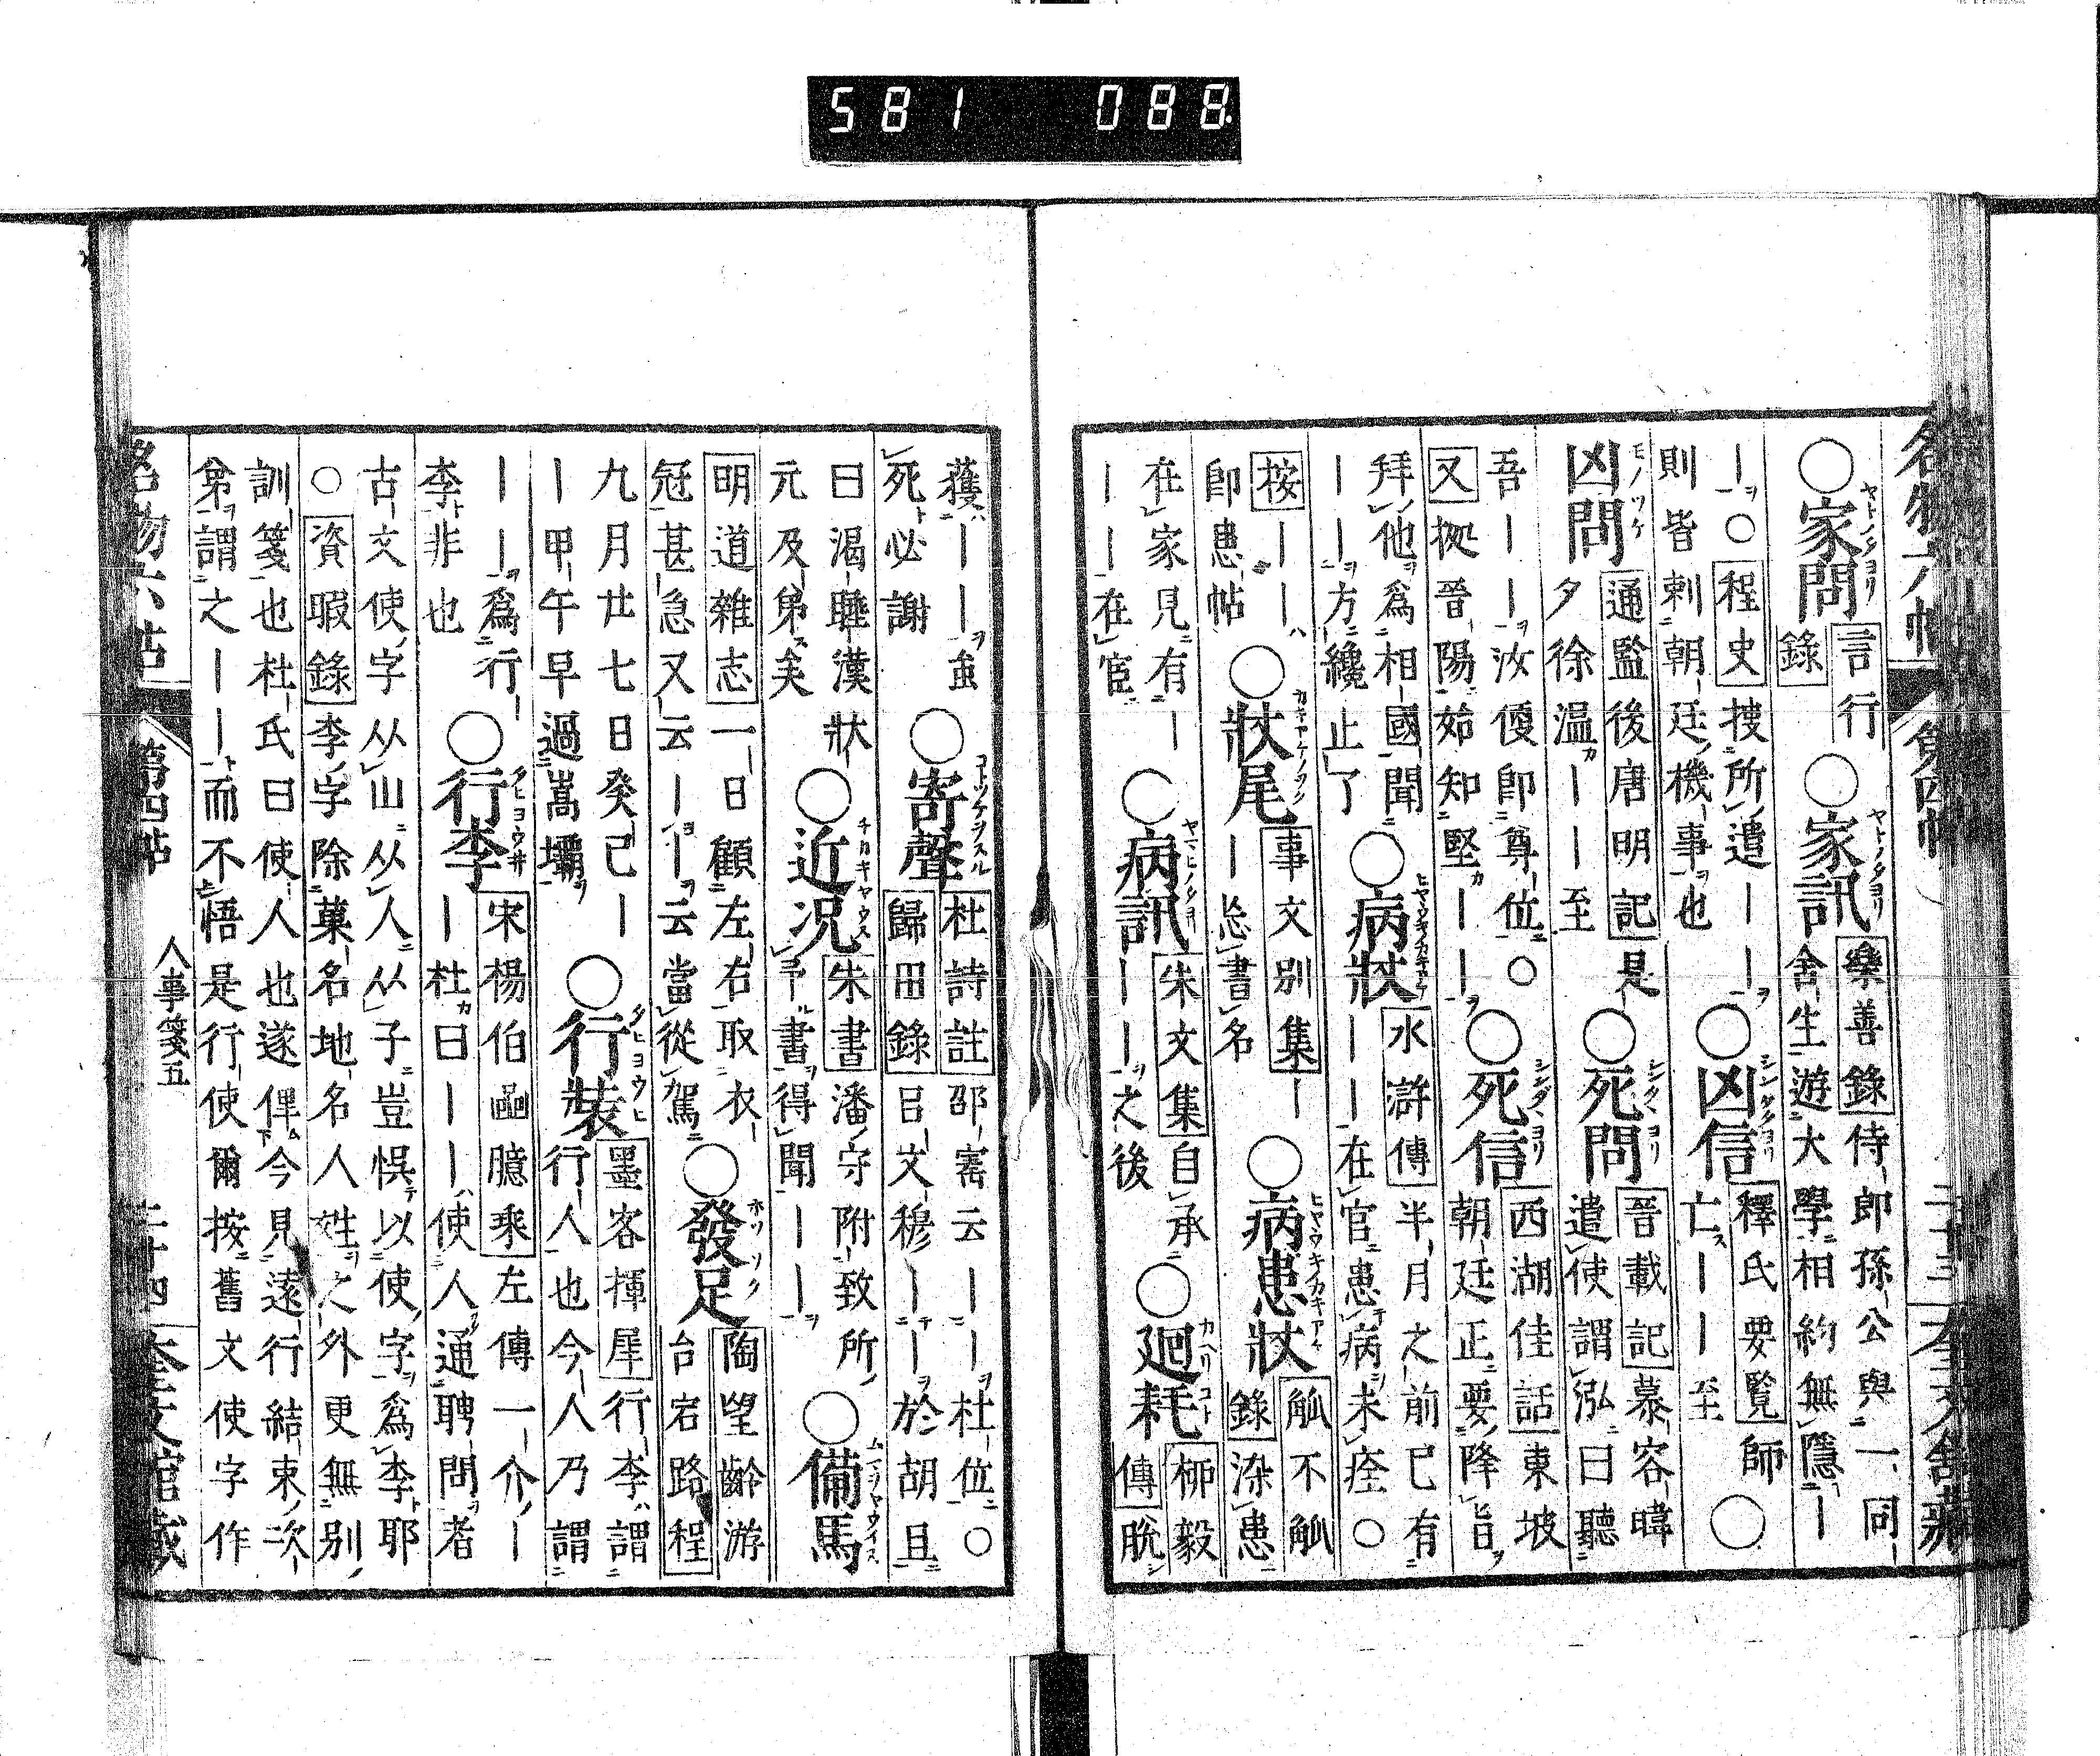 581 088
○家問 言行
錄
○家訊 樂善錄 侍郎孫公與一同
舍生遊大學相約無隱一
一○程史 捜所遣一一
則皆剌朝廷機事也
○凶信 釋氏要覽 師
亡一一至
○凶問 通監後唐明記 是
夕徐温一一至
○死問 晉載記 慕容暐
遣使謂泓曰聽
吾一一汝便即尊位○
又 拠晉陽始知堅一一
○死信 西湖佳話 東坡
朝廷正要降旨
拜他爲相國聞
一一方纔止了
○病狀 水滸傳 半月之前已有
一一在官患病未痊○
按一一
即患帖
○狀尾 事文別集 一
一㤀書名
○病患狀 觚不觚
錄 染患
在家見有一
一一在宦
○病訊 朱文集 自承
一一之後
○廻耗 柳毅
傳 脫
獲一一
死必謝
○寄聲 杜詩註 邵寚云一一杜位○
歸田錄 呂文穆一一於胡且
曰渴睡漢狀
元及第矣
○近况 朱書 潘守附致所
予書得聞一一
○備馬
明道雜志 一日顧左右取衣
冠甚急又云一一云當從駕
○發足 陶望齡游
台宕路程
九月廿七日癸已一
一甲午早過嵩壩
○行裝 墨客揮犀 行李謂
行人也今人乃謂
一一爲行
李非也
○行李 宋楊伯嵒臆乘 左傳一介一
一杜曰一一使人通聘問者
古文使字从山从人从子豈悞以使字爲李耶
○資暇錄 李字除菓名地名人姓之外更無別
訓箋也杜氏曰使人也遂俾今見遠行結束次
第謂之一一而不悟是行使爾按舊文使字作
名物六帖 第四帖 人事箋五 二十四 奎文館藏